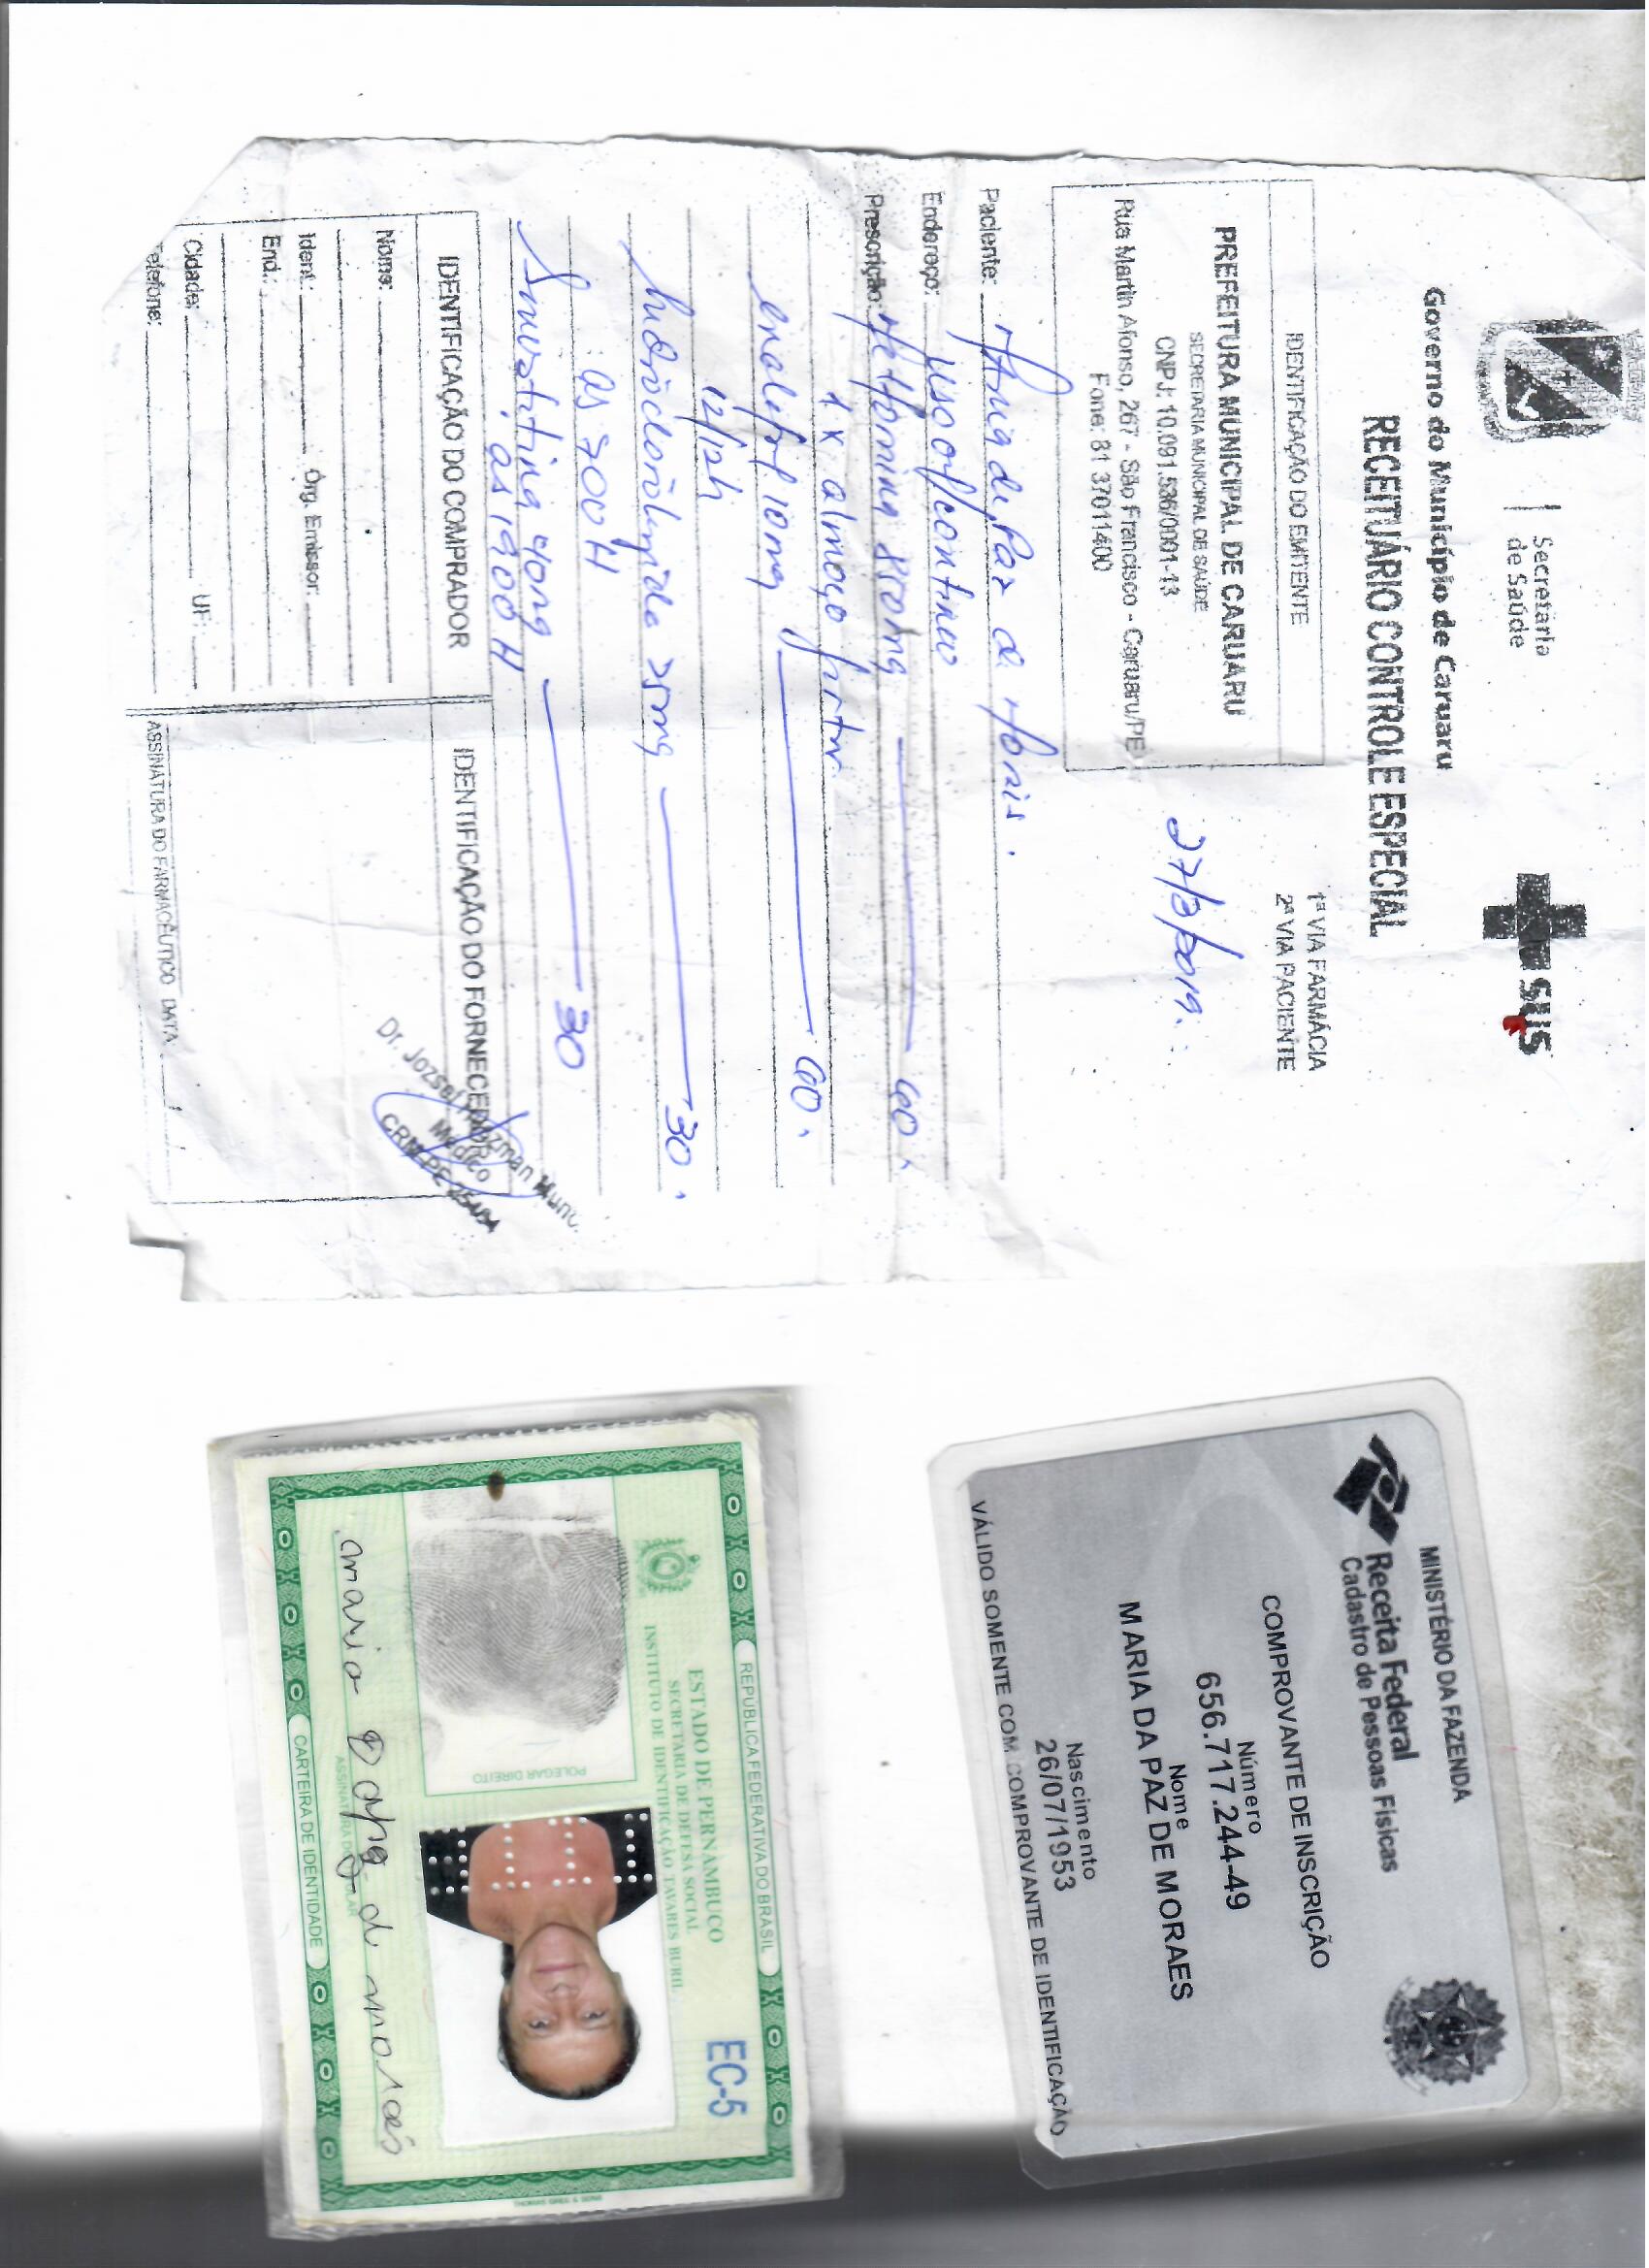 Secretaria
de Saúde
SUS
Governo do Município de Caruaru
RECEITUÁRIO CONTROLE ESPECIAL
IDENTIFICAÇÃO DO EMITENTE
PREFEITURA MUNICIPAL DE CARUARU
SECRETARIA MUNICIPAL DE SAÚDE
CNPJ: 10.091.536/0001-13
Rua Martin Afonso, 267 - São Francisco - Caruaru/PE
Fone: 81 37011400
1ª VIA FARMÁCIA
2ª VIA PACIENTE
27/3/2019.
Paciente: Maria da Paz de Morais.
Endereço: Uso contínuo
Prescrição: Metformina 850mg 60.
1x almoço jantar
enalapril 10mg 60.
12/12h
hidroclorotiazida 25mg 30.
às 700 H
Sinvastatina 40mg 30
às 1900 H
IDENTIFICAÇÃO DO COMPRADOR
Nome:
Ident.: Órg. Emissor:
End.:
Cidade: UF:
Telefone:
IDENTIFICAÇÃO DO FORNECEDOR
ASSINATURA DO FARMACÊUTICO DATA
Médico
MINISTÉRIO DA FAZENDA
Receita Federal
Cadastro de Pessoas Físicas
COMPROVANTE DE INSCRIÇÃO
Número
656.717.244-49
Nome
MARIA DA PAZ DE MORAES
Nascimento
26/07/1953
VÁLIDO SOMENTE COM COMPROVANTE DE IDENTIFICAÇÃO
REPÚBLICA FEDERATIVA DO BRASIL
ESTADO DE PERNAMBUCO
SECRETARIA DE DEFESA SOCIAL
INSTITUTO DE IDENTIFICAÇÃO TAVARES BURIL
EC-5
POLEGAR DIREITO
maria da paz de moraes
CARTEIRA DE IDENTIDADE
THOMAS GREG & SONS